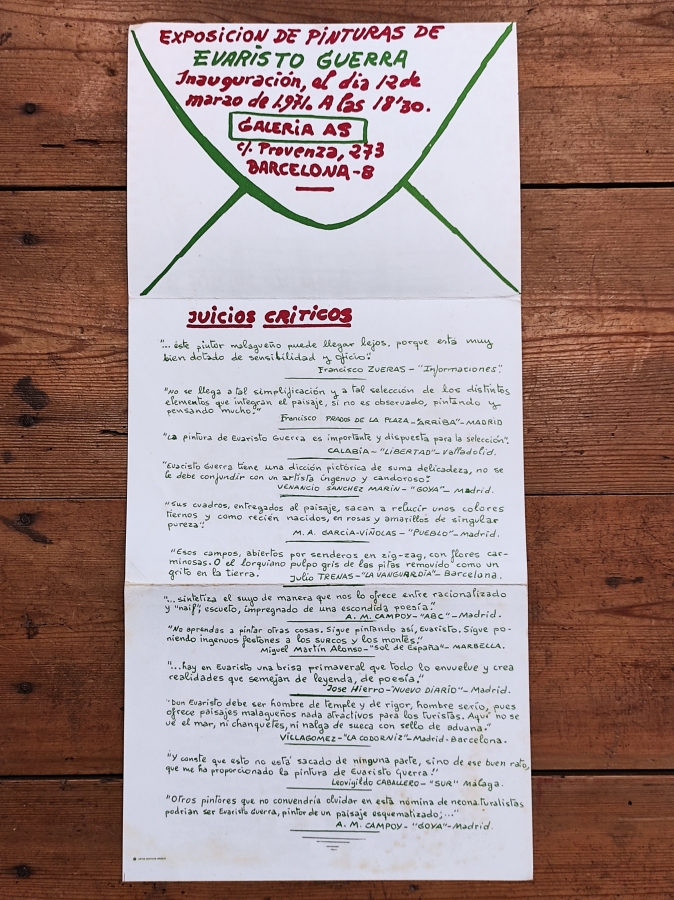 EXPOSICION DE PINTURAS DE
EVARISTO GUERRA
Inauguración, el dia 12 de
marzo de 1.971. A las 18'30.
GALERIA AS
c/. Provenza, 273
BARCELONA-8
JUICIOS CRITICOS
"... éste pintor malagueño puede llegar lejos, porque está muy
bien dotado de sensibilidad y oficio."
Francisco ZUERAS - "Informaciones".
"No se llega a tal simplificación y a tal selección de los distintos
elementos que integran el paisaje, si no es observado, pintando y
pensando mucho."
Francisco PRADOS DE LA PLAZA - "ARRIBA" - MADRID
"La pintura de Evaristo Guerra es importante y dispuesta para la selección".
CALABIA - "LIBERTAD" - Valladolid.
"Evaristo Guerra tiene una dicción pictórica de suma delicadeza, no se
le debe confundir con un artista ingenuo y candoroso."
VENANCIO SANCHEZ MARIN - "GOYA" - Madrid.
"Sus cuadros, entregados al paisaje, sacan a relucir unos colores
tiernos y como recién nacidos, en rosas y amarillos de singular
pureza".
M. A. GARCIA-VIÑOLAS - "PUEBLO" - Madrid.
"Esos campos, abiertos por senderos en zig-zag, con flores car-
minosas. O el lorquiano pulpo gris de las pitas removido como un
grito en la tierra.
Julio TRENAS - "LA VANGUARDIA" - Barcelona.
"... sintetiza el suyo de manera que nos lo ofrece entre racionalizado
y "naif", escueto, impregnado de una escondida poesía."
A. M. CAMPOY - "ABC" - Madrid.
"No aprendas a pintar otras cosas. Sigue pintando así, Evaristo. Sigue po-
niendo ingenuos festones a los surcos y los montes."
Miguel Martín Alonso - "Sol de España" - MARBELLA.
"... hay en Evaristo una brisa primaveral que todo lo envuelve y crea
realidades que semejan de leyenda, de poesía."
Jose Hierro - "NUEVO DIARIO" - Madrid.
"Don Evaristo debe ser hombre de temple y de rigor, hombre serio, pues
ofrece paisajes malagueños nada atractivos para los turistas. Aquí no se
ve el mar, ni chanquetes, ni nalga de sueca con sello de aduana."
VILLAGOMEZ - "LA CODORNIZ" - Madrid - Barcelona.
"Y conste que esto no está sacado de ninguna parte, sino de ese buen rato,
que me ha proporcionado la pintura de Evaristo Guerra."
Leovigildo CABALLERO - "SUR" Málaga.
"Otros pintores que no convendría olvidar en esta nómina de neonaturalistas
podrían ser Evaristo Guerra, pintor de un paisaje esquematizado;..."
A. M. CAMPOY - "GOYA" - Madrid.